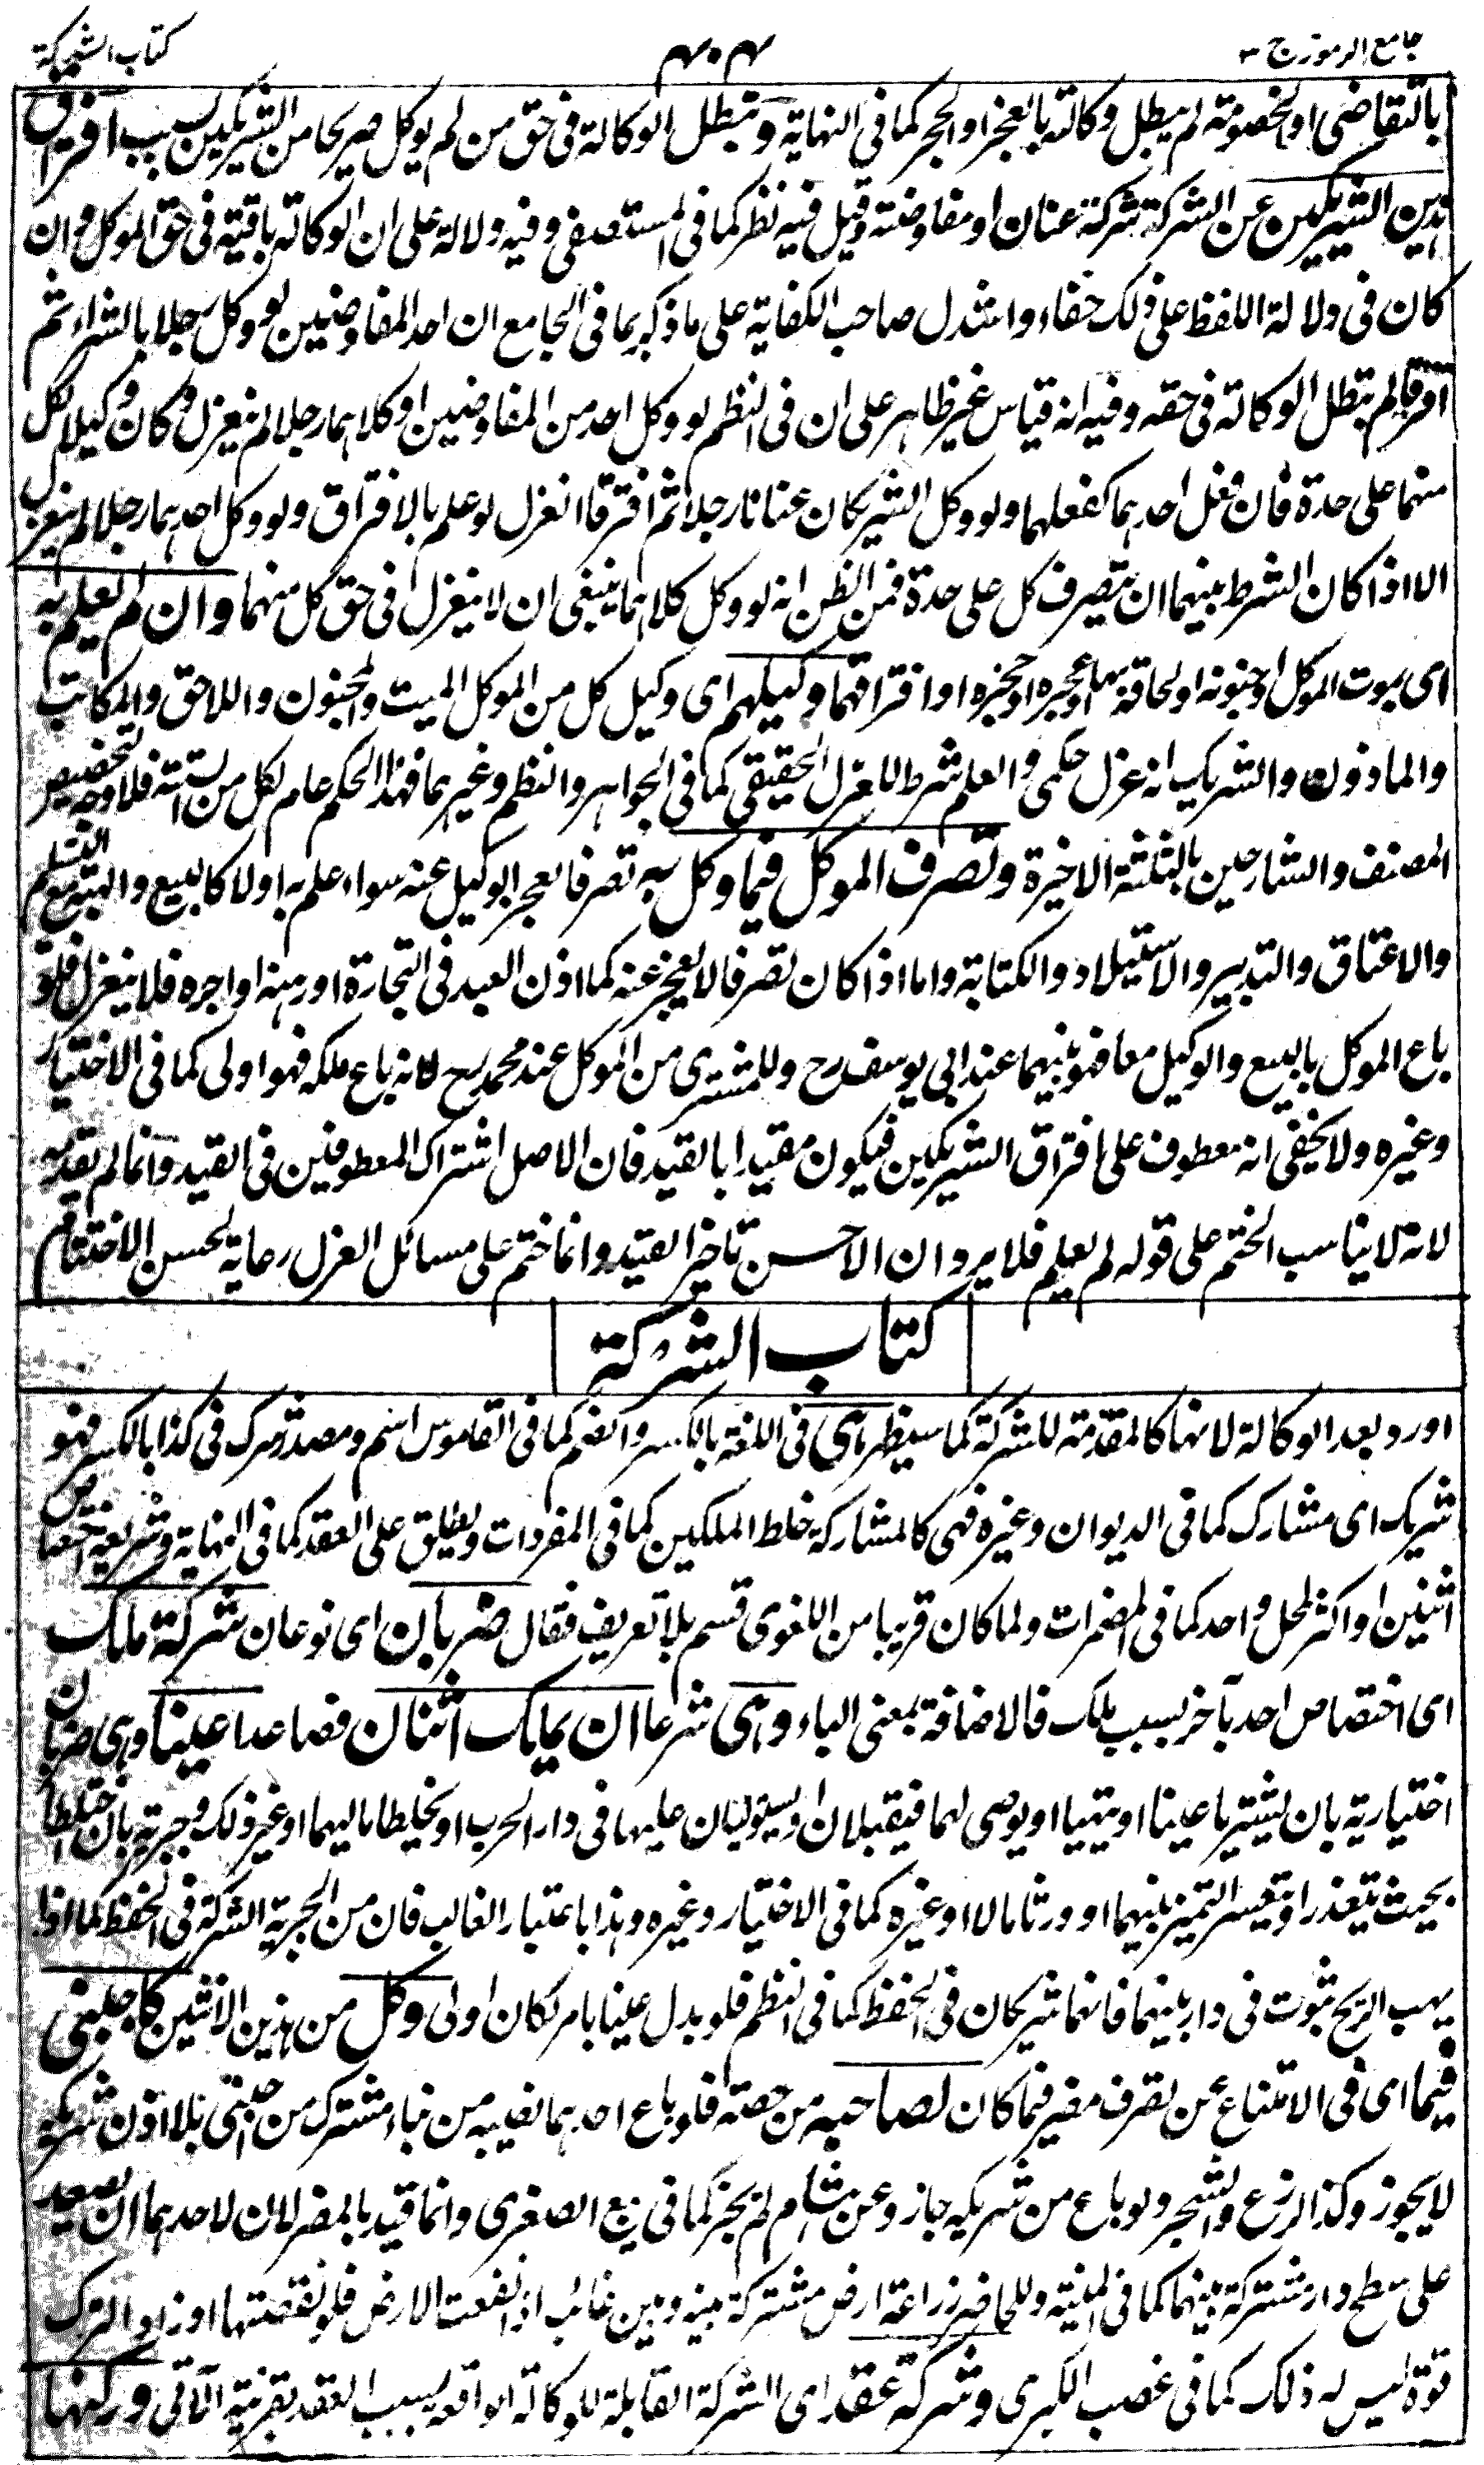 جامع الرموز ج ٣
٤٠٤
كتاب الشركة
بالتقاضى او الخصومة لم يبطل وكالته بالعجز او الحجر كما فى النهاية وتبطل الوكالة فى حق من لم يوكل صريحا من الشريكين بسبب افتراق
هذين الشريكين عن الشركة شركة عنان او مفاوضة وقيل فيه نظر كما فى المستصفى وفيه دلالة على ان الوكالة باقية فى حق الموكل وان
كان فى دلالة اللفظ على ذلك خفاء واستدل صاحب الكفاية على ما ذكر بما فى الجامع ان احد المفاوضين لو وكل رجلا بالشراء ثم
افترقا لم تبطل الوكالة فى حقه وفيه انه قياس غير ظاهر على ان فى النظم لو وكل احد من المفاوضين او كلاهما رجلا لم ينعزل وكان وكيلا لكل
منهما على حدة فان فعل احدهما كفعلهما ولو وكل الشريكان عنانا رجلا ثم افترقا انعزل لو علم بالافتراق ولو وكل احدهما رجلا لم ينعزل
الا اذا كان الشرط بينهما ان يتصرف كل على حدة فمن الظن انه لو وكل كلاهما ينبغى ان لا ينعزل فى حق كل منهما وان لم يعلم به
اى بموت الموكل او جنونه او لحاقه بها او عجزه او حجره او افتراقهما وكيلهم اى وكيل كل من الموكل الميت والمجنون واللاحق والمكاتب
والماذون والشريك انه عزل حكمى والعلم شرط للعزل الحقيقى كما فى الجواهر والنظم وغيرهما فهذا الحكم عام لكل من الستة فلا وجه لتخصيص
المصنف والشارحين بالثلثة الاخيرة وتصرف الموكل فيما وكل به تصرفا يعجز الوكيل عنه سواء علم به او لا كالبيع والهبة مع التسليم
والاعتاق والتدبير والاستيلاد والكتابة واما اذا كان تصرفا لا يعجز عنه كما اذن العبد فى التجارة او رهنه او اجره فلا ينعزل فلو
باع الموكل بالبيع والوكيل معا فهو بينهما عند ابى يوسف رح وللمشترى من الموكل عند محمد رح لانه باع ملكه فهو اولى كما فى الاختيار
وغيره ولا يخفى انه معطوف على افتراق الشريكين فيكون مقيدا بالقيد فان الاصل اشتراك المعطوفين فى القيد وانما لم يقدمه
لانه لا يناسب الختم على قوله لم يعلم فلا يرد ان الاحسن تاخير القيد وانما ختم على مسائل العزل رعاية لحسن الاختتام
كتاب الشركة
اورد بعد الوكالة لانها كالمقدمة للشركة كما سيظهر هى فى اللغة بالكسر والضم كما فى القاموس اسم ومصدر شرك فى كذا بالكسر فهو
شريك اى مشارك كما فى الديوان وغيره فهى كالمشاركة خلط الملكين كما فى المفردات ويطلق على العقد كما فى النهاية وشريعة اختصاص
اثنين او اكثر لمحل واحد كما فى المضمرات ولما كان قريبا من اللغوى قسم بلا تعريف فقال ضربان اى نوعان شركة ملك
اى اختصاص احد بآخر بسبب ملك فالاضافة بمعنى الباء وهى شرعا ان يملك اثنان فصاعدا عينا وهى ضربان
اختيارية بان يشتريا عينا او يتهبا او يوصى لهما فيقبلان او يستوليان عليها فى دار الحرب او يخلطا ماليهما او غير ذلك وجبرية بان يختلطا
بحيث يتعذر او يتعسر التميز بينهما او ورثا مالا او غيره كما فى الاختيار وغيره وهذا باعتبار الغالب فان من الجبرية الشركة فى الحفظ كما اذا
يهب الريح بثوب فى دار بينهما فانهما شريكان فى الحفظ كما فى النظم فلو بدل عينا بامر لكان اولى وكل من هذين الاثنين كاجنبى
فيما اى فى الامتناع عن تصرف مضر فيما كان لصاحبه من حصته فلو باع احدهما نصيبه من بناء مشترك من اجنبى بلا اذن شريكه
لا يجوز وكذا الزرع والشجر ولو باع من شريكه جاز وعن هشام لم يجز كما فى بيع الصغرى وانما قيد بالمضر لان لاحدهما ان يصعد
على سطح دار مشتركة بينهما كما فى المنية وللحاضر زراعة ارض مشتركة بينه وبين غائب اذا نفعت الارض فلو نقصتها او زاد الترك
قوة ليس له ذلك كما فى غصب الكبرى وشركة عقد اى الشركة القابلة للوكالة الواقعة بسبب العقد بقرينة الآتى وركنها